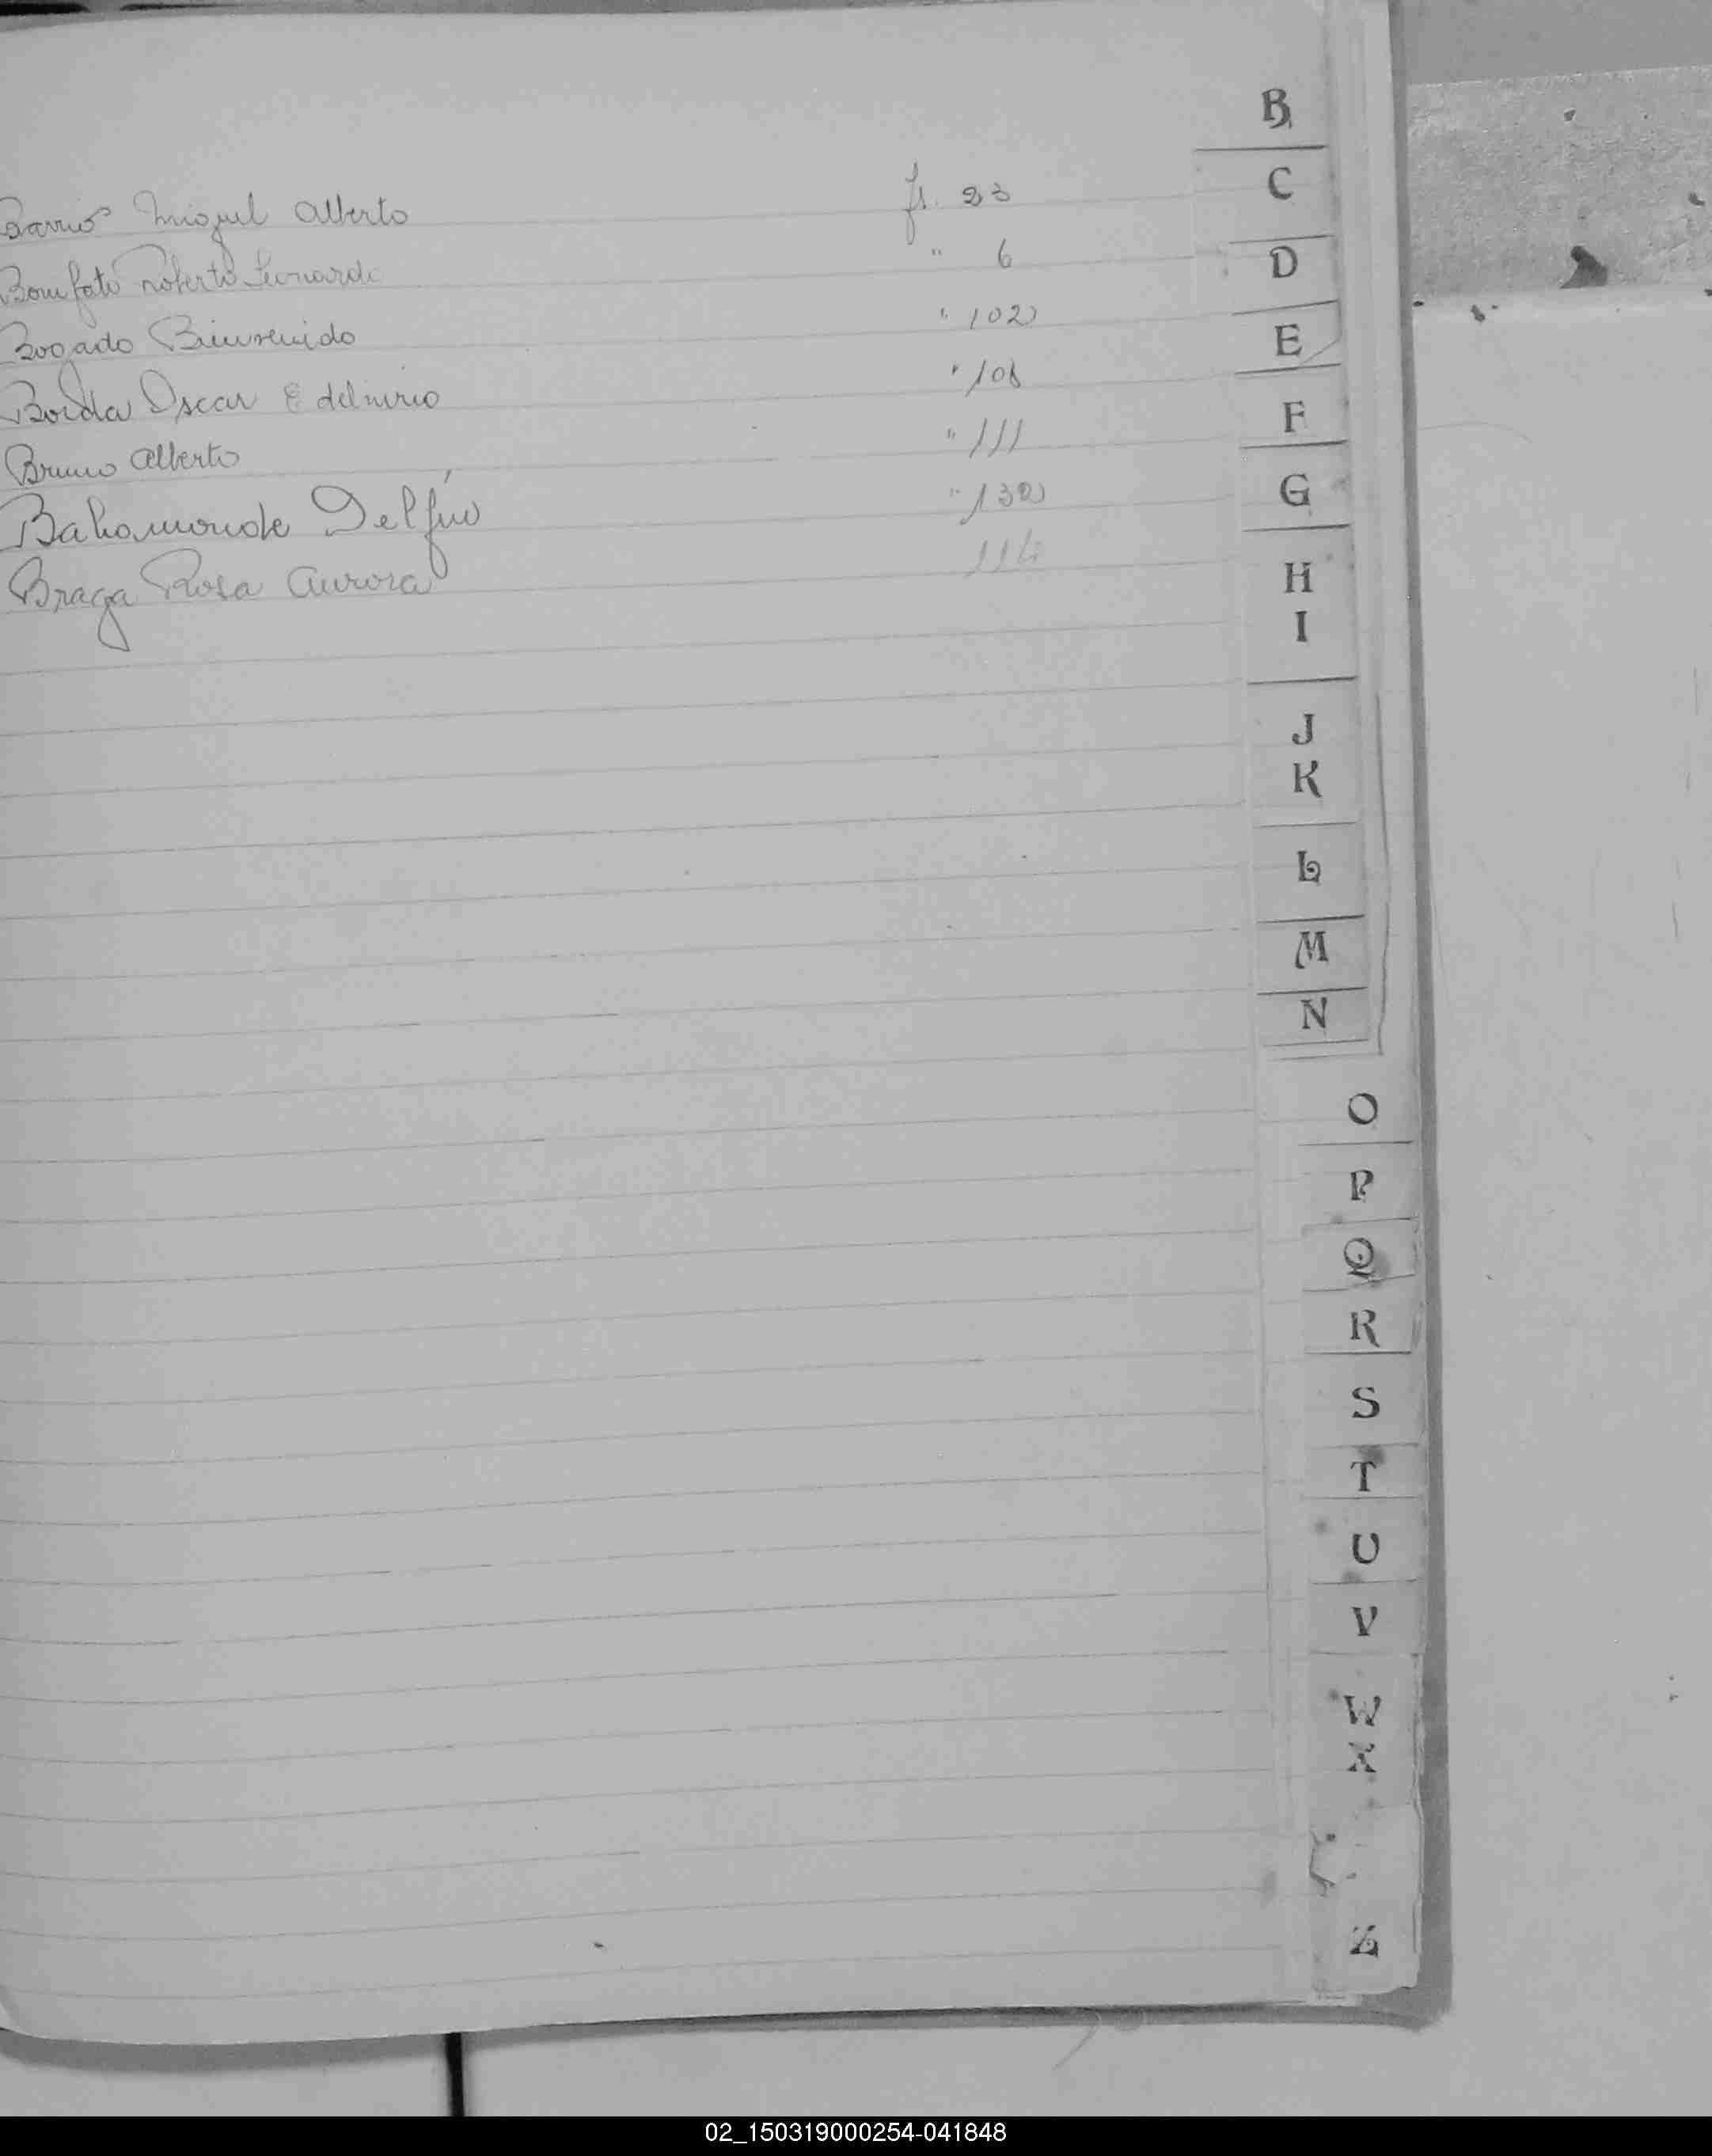 B
C
Barrios Miguel Alberto fs. 23
D
Bonifati Roberto Leonardo " 6
E
Bogado Bienvenido " 102
Borda Oscar Edelmiro "
F
Bruno Alberto " 111
G
Bahamonde Delfín " 132
H
Braga Rosa Aurora
I
J
K
L
M
N
O
P
Q
R
S
T
U
V
W
X
Z
02_150319000254-041848